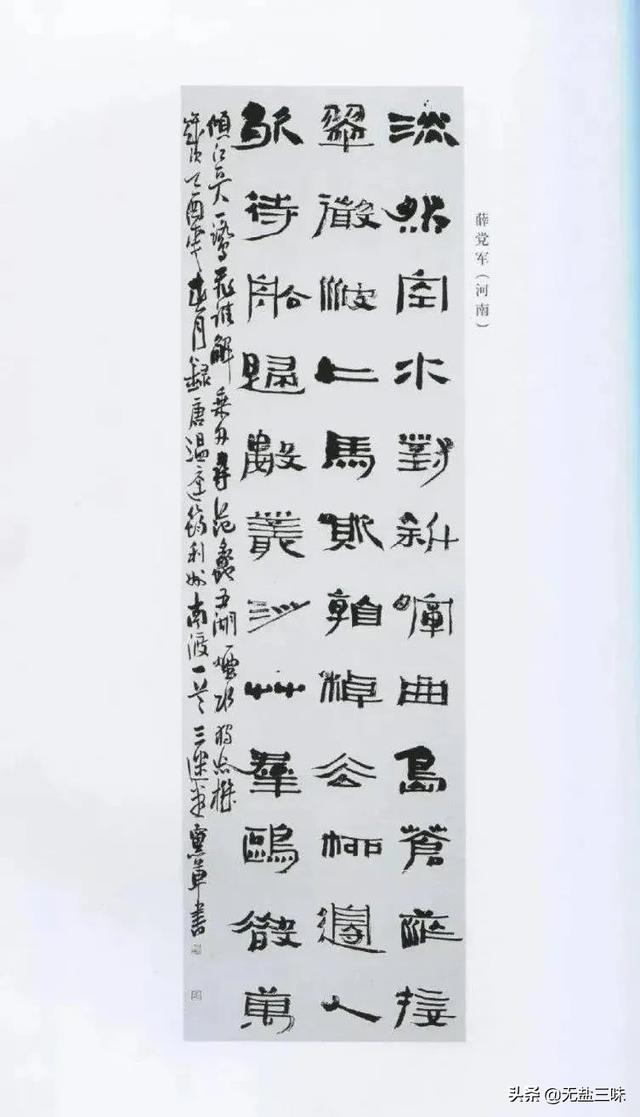 薛党军（河南）
淡然空水對斜暉曲島蒼茫接
翠微波上馬嘶看棹去柳邊人
歇待船歸數叢沙艸羣鷗散萬
傾江田一鷺飛誰解乘舟尋范蠡五湖煙水獨忘機
歲次乙酉年月錄唐温庭筠利州南渡一首三黨軍書
头条 @无盐三味